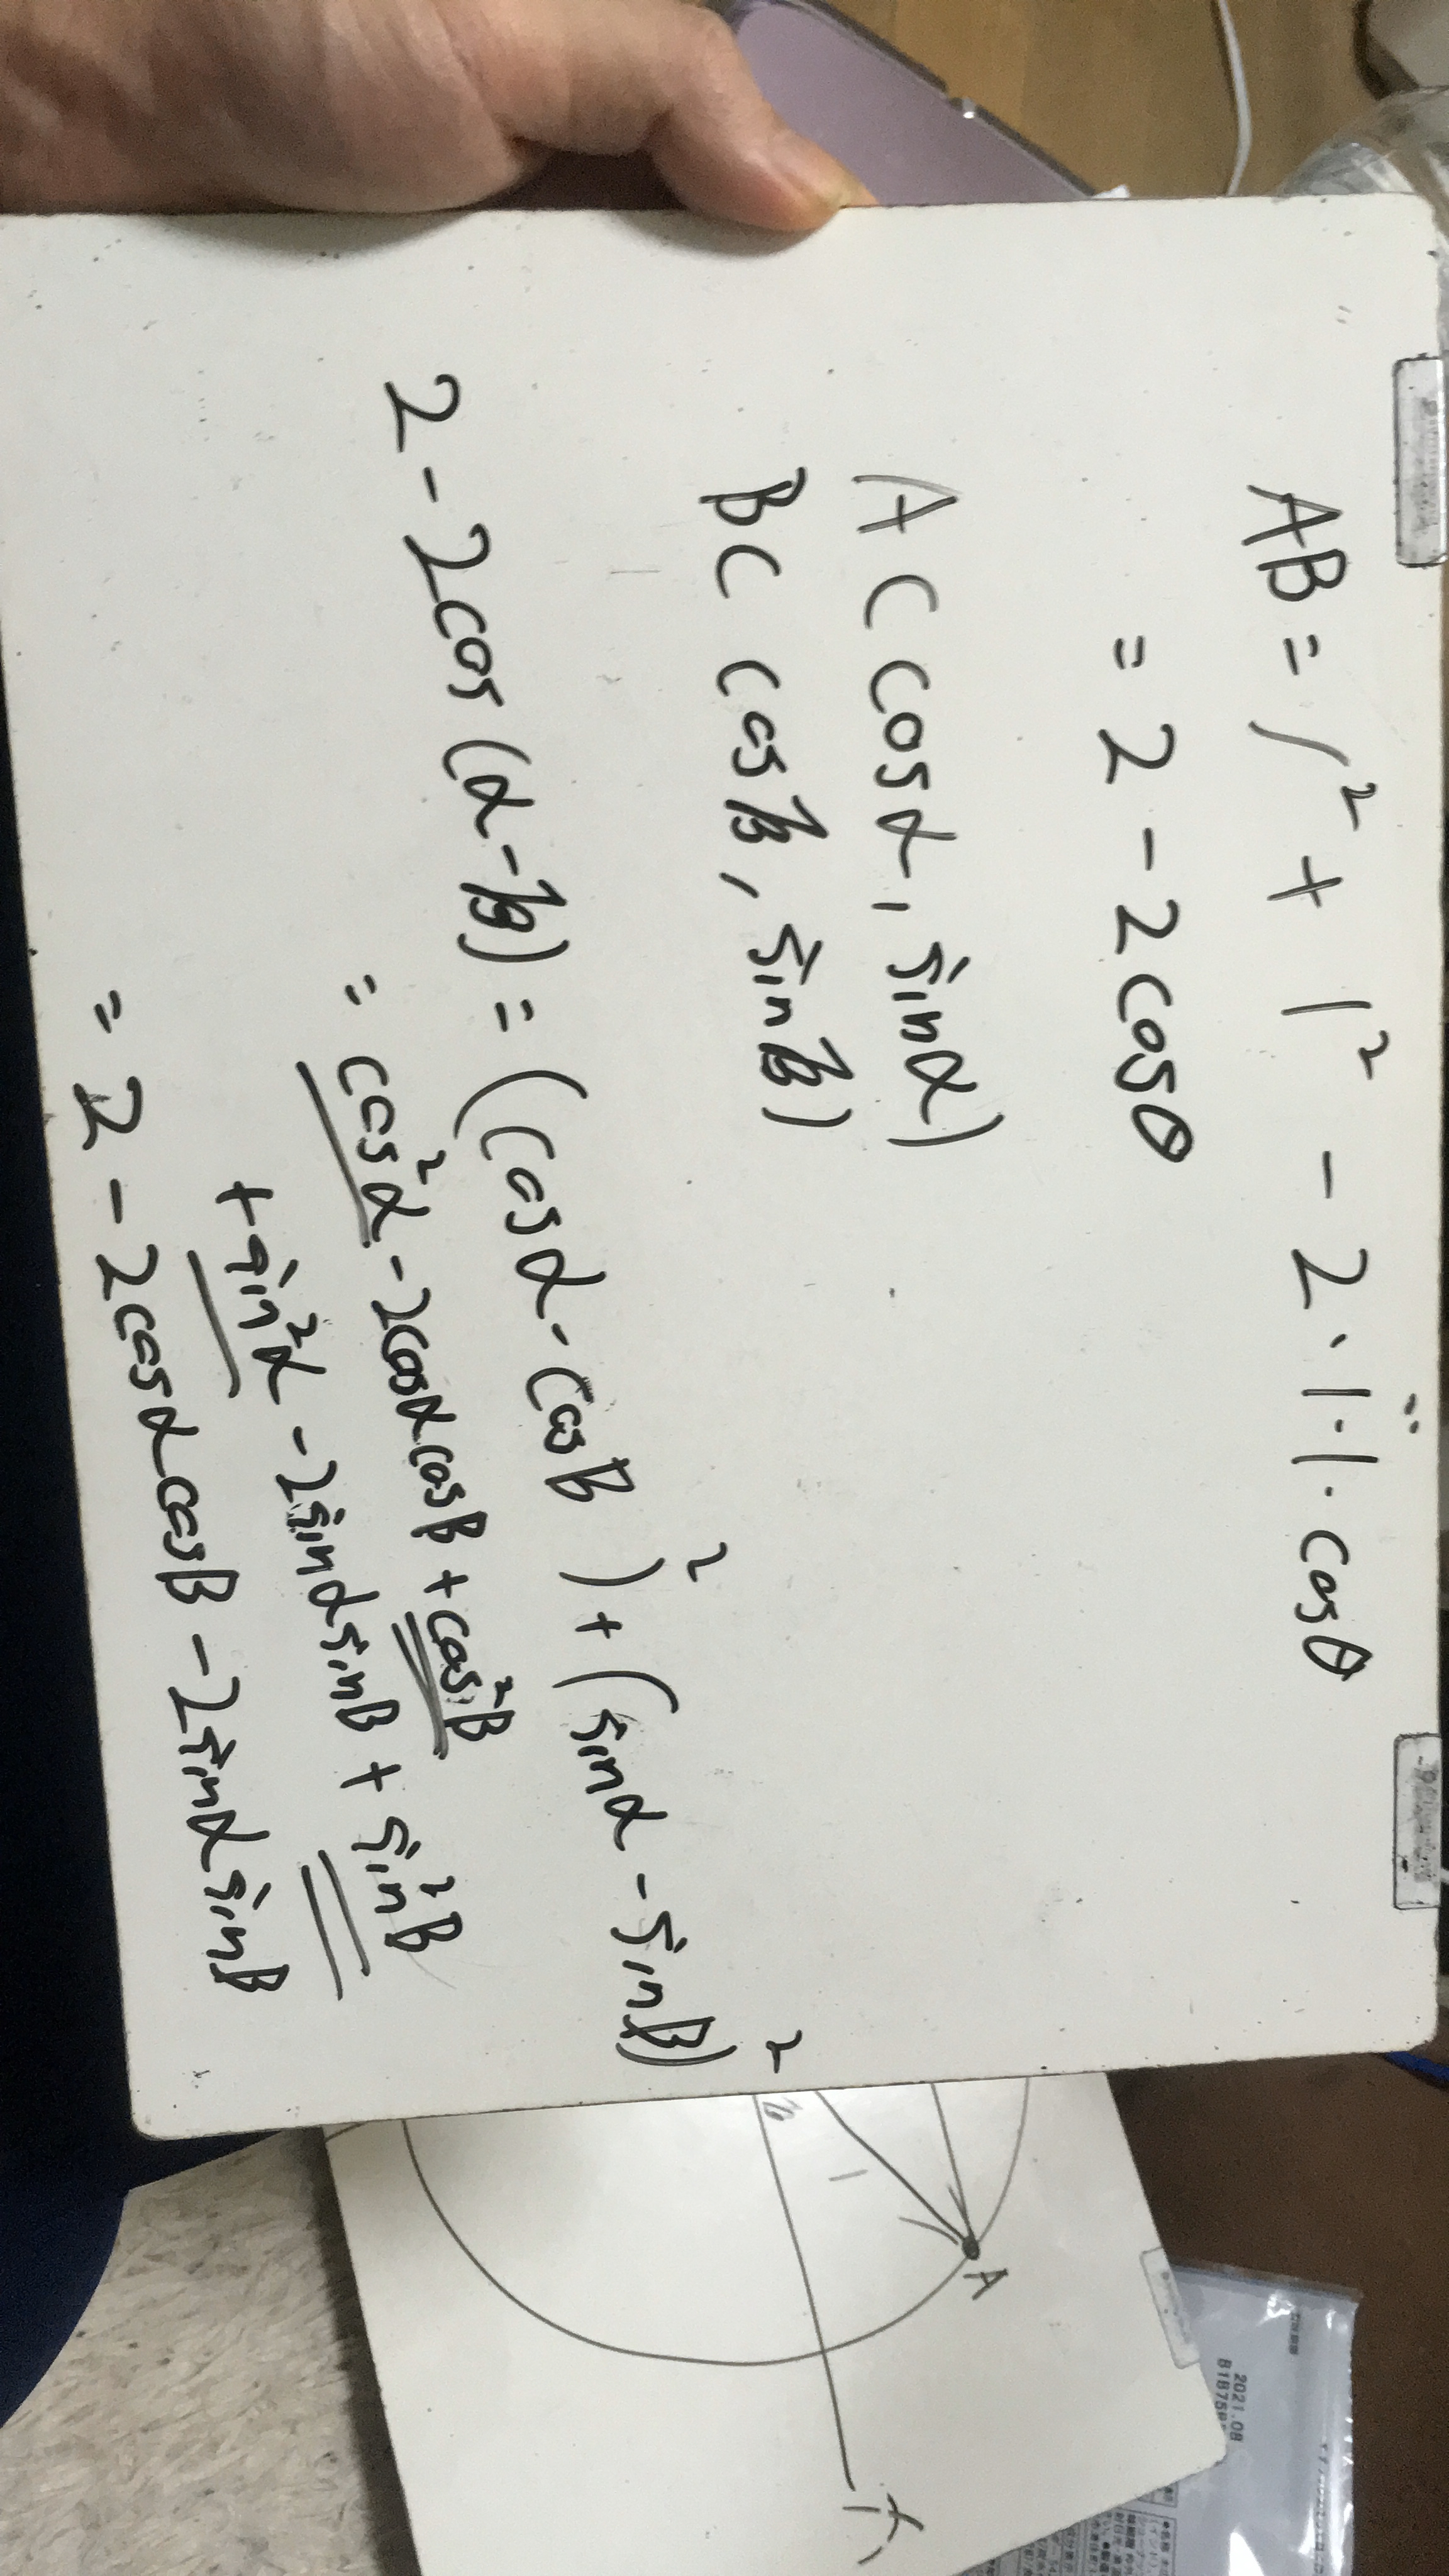 AB = 1² + 1² - 2·1·1·cosθ
= 2 - 2cosθ
A(cosα, sinα)
B(cosβ, sinβ)
2 - 2cos(α-β) = (cosα - cosβ)² + (sinα - sinβ)²
= cos²α - 2cosαcosβ + cos²β
+ sin²α - 2sinαsinβ + sin²β
= 2 - 2cosαcosβ - 2sinαsinβ
1
A
2021.08